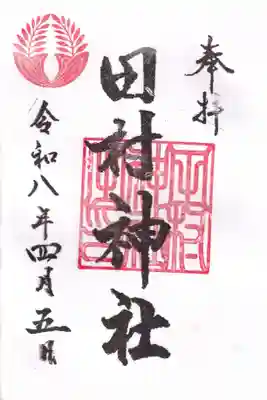 奉拝
田村神社
令和八年四月五日